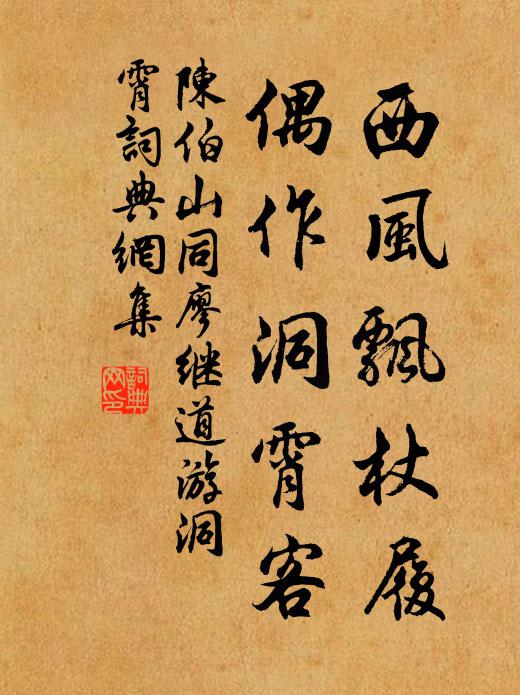 西風飄杖履
偶作洞霄客
陳伯山同廖继道游洞
霄詞典網集
詞典网印